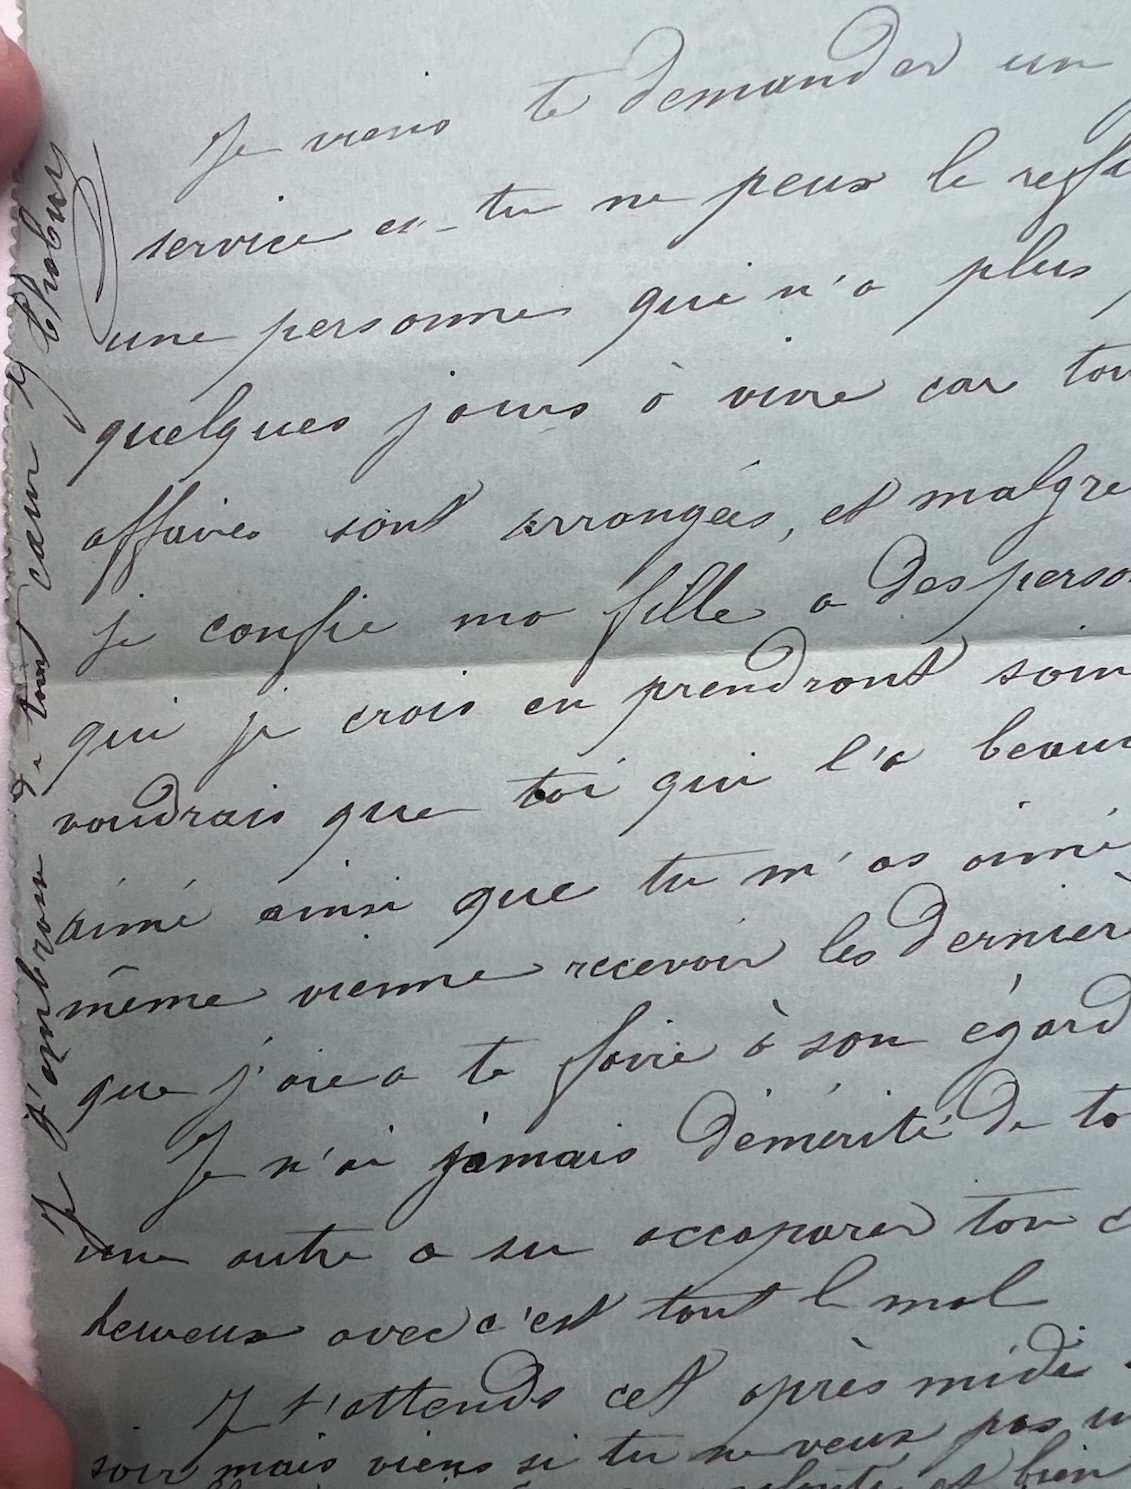 Je viens te demander un
service et tu ne peux le refu
une personne qui n'a plus
quelques jours à vivre car tou
affaires sont arrangées, et malgre
je confie ma fille a des perso
qui je crois en prendront soin
voudrais que toi qui l'a beau
aimé ainsi que tu m'as aimé
même vienne recevoir les dernier
que j'aie a te faire à son égard
Je n'ai jamais démérité de to
une autre a su accaparer ton c
heureux avec c'est tout le mal
Je t'attends cet après midi
soir mais viens si tu ne veux pas
et bien
Je t'embrasse de tout cœur